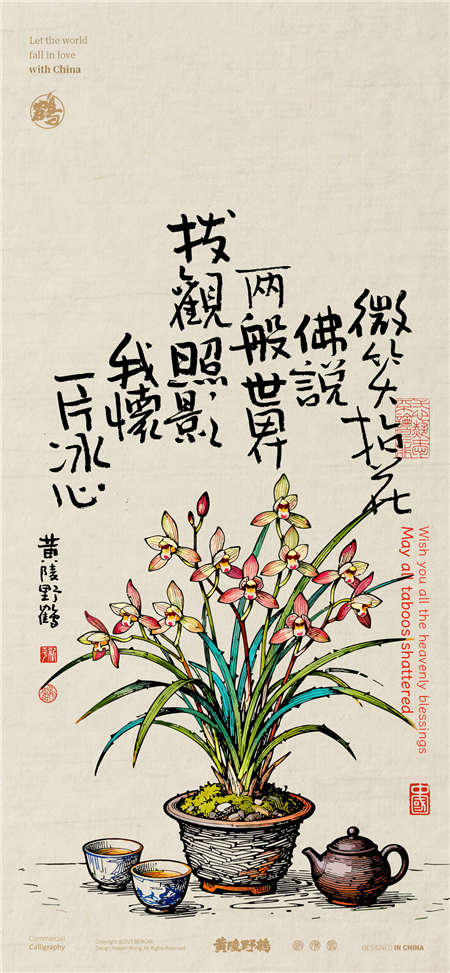 Let the world
fall in love
with China
鹤
微笑拈花
佛説
两般世界
拔觀照影
我懷
一片冰心
黄陵野鶴
Wish you all the heavenly blessings
May all taboos shattered
中國
Commercial
Calligraphy
黄陵野鹤
DESIGNED IN CHINA